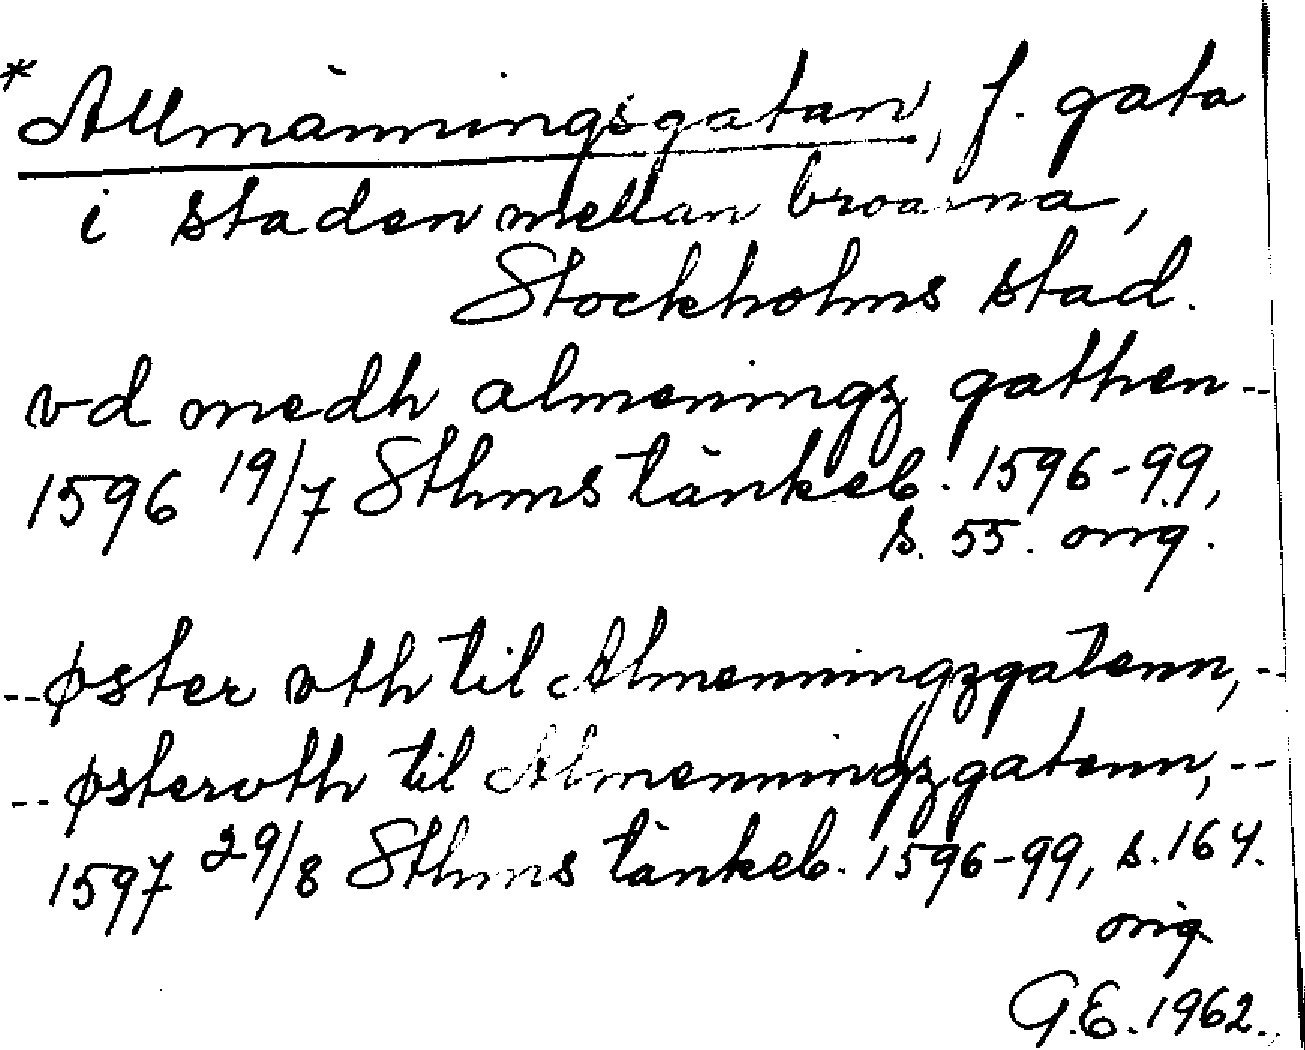 * Allmänningsgatan, f. gata
i staden mellan broarna,
Stockholms stad.
vd medh almeningz gathen --
1596 19/7 Sthms tänkeb. 1596-99,
s. 55. orig.
-- øster vth til Almenningzgatenn, --
-- østervth til Almenningzgatenn, --
1597 29/8 Sthms tänkeb. 1596-99, s. 164.
orig
G.E. 1962.